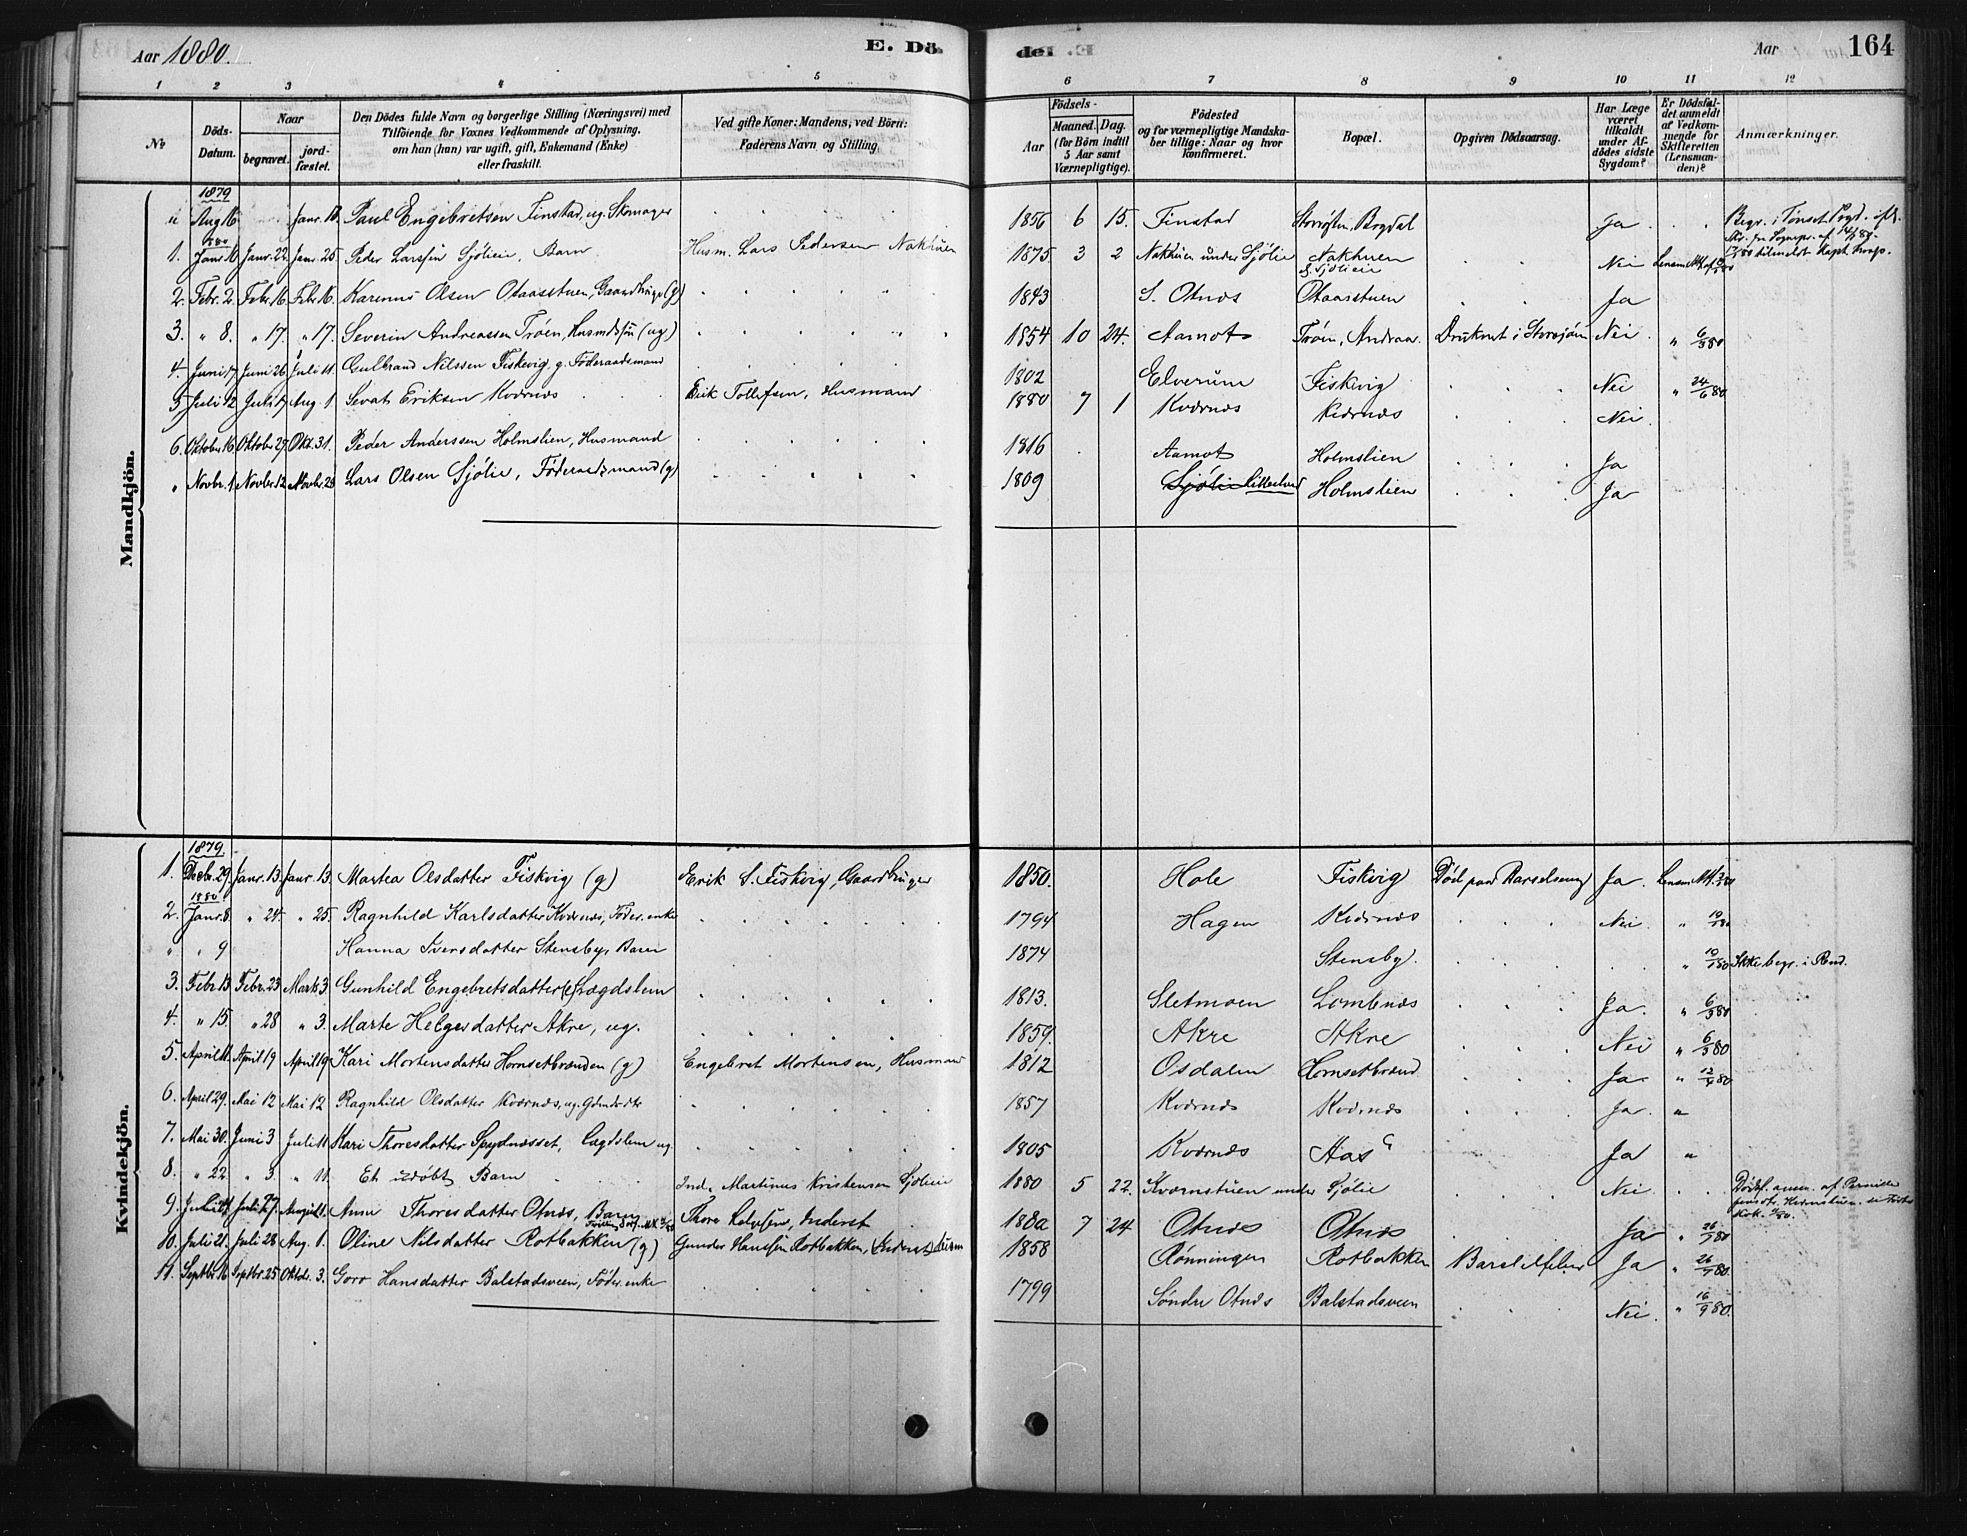 Aar 1880. E. Dö- del E. Aar 164
1 2 3 4 5 6 7 8 9 10 11 12
No
Döds-Datum.
Naar
begravet.
jord-fæstet.
Den Dödes fulde Navn og borgerlige Stilling (Næringsvei) med
Tilföiende for Voxnes Vedkommende af Oplysning.
om han (hun) var ugift, gift, Enkemand (Enke)
eller fraskilt.
Ved gifte Koner: Mandens, ved Börn:
Faderens Navn og Stilling.
Födsels-
Aar
Maaned. Dag.
(for Börn indtil
5 Aar samt
Værnepligtige).
Födested
og for værnepligtige Mandska-
ber tillige: Naar og hvor
konfirmeret.
Bopæl.
Opgiven Dödsaarsag.
Har Læge
været
tilkaldt
under Af-
dödes sidste
Sygdom?
Er Dödsfal-
det anmeldt
af Vedkom-
mende for
Skifteretten
(Lensman-
den)?
Anmærkninger.
Mandkjön.
1879
" Aug 16 Janr. Paul Engebretsen Finstad, ug. Skomager 1856 6 15. Finstad Ja Begr. i Tønset
1880
1. Janr. Janr. 22. Janr. 25. Peder Larssen Sjölieie, Barn Husm. Lars Pedersen Nakhuen 1875 3 2 Nakhuen under Sjölie Nakhuen Sjölieie Nei Lensm.
2. Febr. 2. Febr. 16. Febr. 16. Karenus Olsen Otaasstuen, Gaardbruger (g) 1843 S. Otnæs Otaasstuen Ja
3. " 8. " 17. " 17. Severin Andreassen Trøen, Husmdssøn (ug) 1854 10 24. Aamot Trøen, Andraa. Druknet i Storsjøen Nei " 6/3 80
4. Juni 17 Juni 26 Juli 11. Gulbrand Nilssen Fiskvig, g. Föderaadsmand 1802 Elverum Fiskvig Nei " 24/6 80
5. Juli 12 Juli 17 Aug. 1 Sevat Eriksen Kværnæs Erik Tollefsen, Husmand 1880 7 1 Kværnæs Kværnæs Nei.
6. Oktober 16. Oktober 29. Okt. 31. Peder Anderssen Holmslien, Husmand 1816 Aamot Holmslien Ja
" Novbr. 1. Novbr. 12. Novbr. 28 Lars Olsen Sjölie, Föderaadsmand (g) 1809 Sjölie Holmslien Ja
Kvindekjön.
1879
1. Decbr. 29. Janr. 13. Janr. 13. Martea Olsdatter Fiskvig (g) Erik S. Fiskvig, Gaardbruger 1850. Hole Fiskvig Död paa Barselseng Ja. Lensm.
1880
2. Janr. 8. " 24. " 25. Ragnhild Karlsdatter Kværnæs, Föder. enke 1794 Hagen Kværnæs Nei.
" " 9 Hanna Iversdatter Stensby, Barn 1874 Stensby. Ikke begr. i Rend.
3. Febr. 13 Febr. 23 Marts 3. Gunhild Engebretsdatter (e) Lægdslem 1813. Sletmoen Lomnæs Ja. " 6/3 80
4. " 15. " 28 " 3. Marte Helgesdatter Akre, ug. 1859. Akre Akre Nei " 6/3 80
5. April 11. April 19 April 19 Kari Mortensdatter Hornsetbrænden (g) Engebret Mortensen, Husmand 1812 Osdalen Hornsetbrænd Ja.
6. April 29. Mai 12 Mai 12 Ragnhild Olsdatter Kværnæs, ug. Gdmdsdtr 1857 Kværnæs Kværnæs Ja. "
7. Mai 30. Juni 3 Juli 11. Kari Thoresdatter Spydnæsset, Lægdslem ug. 1805 Kværnæs Aas Ja "
8. " 22. " 3. " 11. Et udöbt Barn Ind. Martinus Kristensen Sjölieie 1880 5 22. Kværnstuen under Sjölie Nei. Dödsf. anm. af Pernille
9. Juli Juli 27. August 1. Anne Thoresdatter Otnæs, Barn Thore Inderst 1880 7 24 Otnæs Otnæs Ja " 26/7 80
10. Juli 21. Juli 28 Aug. 1. Oline Nilsdatter Rotbakken (g) Gunder Hanssen Rotbakken, Husm 1858 Rønningen Rotbakken Barselfeber Ja
11. Septbr. 16 Septbr. 25 Oktbr. 3. Goro Hansdatter Balstadsveen, Föder. enke 1799 Søndre Otnæs Balstadsveen Nei. " 16/9 80.